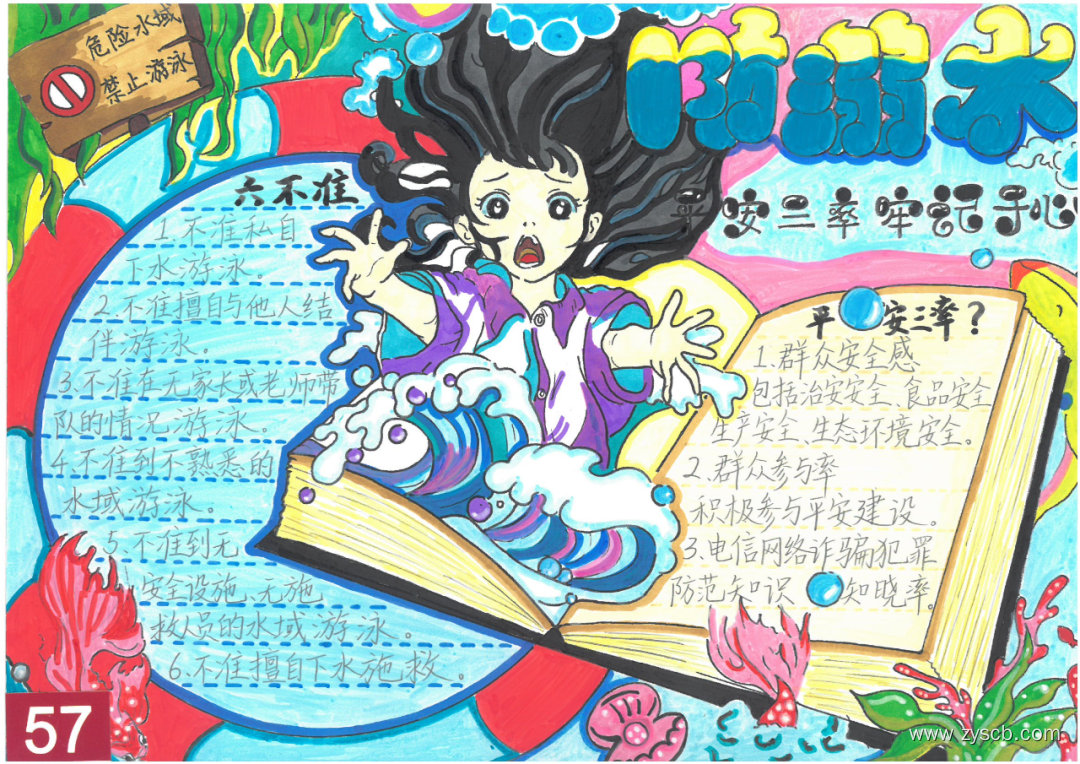 危险水域
禁止游泳
防溺水
平安三率牢记于心
六不准
1.不准私自
下水游泳。
2.不准擅自与他人结
伴游泳。
3.不准在无家长或老师带
队的情况游泳。
4.不准到不熟悉的
水域游泳。
5.不准到无
安全设施、无施
救人员的水域游泳。
6.不准擅自下水施救。
平安三率?
1.群众安全感
包括治安安全、食品安全
生产安全、生态环境安全。
2.群众参与率
积极参与平安建设。
3.电信网络诈骗犯罪
防范知识 知晓率。
57
www.zyscb.com